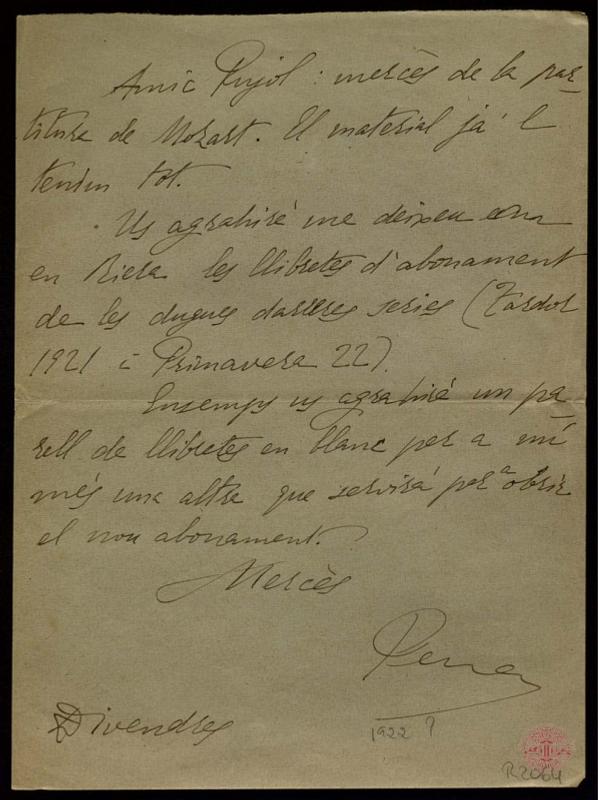 Amic Pujol: mercès de la par-
titura de Mozart. El material já l
tenim tot.
Us agrahiré me deixeu amb
en Riera les llibretes d'abonament
de les dugues darreres series (Tardor
1921 i Primavera 22).
Ensemps us agrahiré un pa-
rell de llibretes en blanc per a mí
més una altra que servirá per a obrir
el nou abonament.
Mercès
Pena
Divendres
1922?
R2064